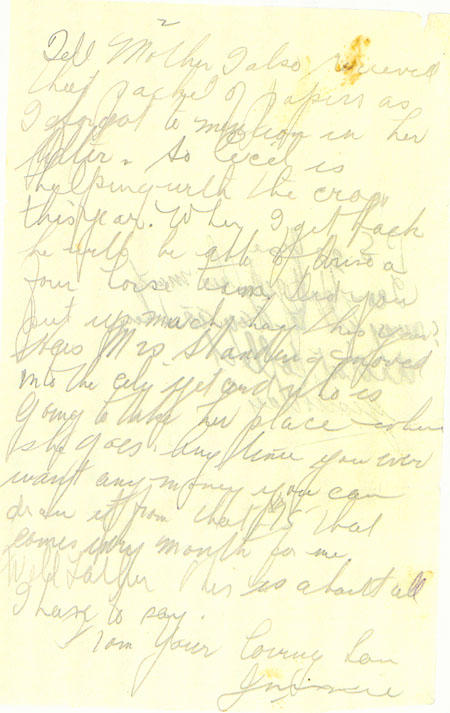 2
Tell Mother I also recieved
that packet of papers as
I forgot to mention in her
letter. So Cecil is
helping with the crop
this year. When I get back
he will be able to drive a
four horse team, did you
put up much hay this year?
Has Mrs moved
into the city yet and who is
going to take her place when
she goes. any time you ever
want any money you can
draw it from that that
comes every month for me.
Well Father This is about all
I have to say.
From Your Loving Son